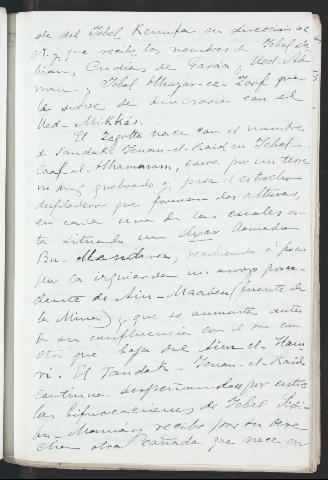 de del Yebel Kerrufa en direccion al
N. y que recibe los nombres de Yebel
Cudias de Garcia, Ued-
man y Yebel Alhazar-ez-Zoof que
le sirve de divisoria con el
Ued-Mikkás.
El Zegotta nace con el nombre
de Tandak-Yenan-el-Kaid en Yebel-
Caaf-el-Ahamaram, corre por un terre
no muy quebrado y pasa estrechos
desfiladeros que forman dos alturas,
en cada una de las cuales es
ta situado un dyar llamado
Bu-Mandara, recibiendo á poco
por la izquierda un arroyo proce
dente de Ain-Maaden (fuente de
la Mina) y que se aumenta antes
de su confluencia con el rio con
otro que baja del Ain-el-Ham
ri. El Tandak-Yenan-el-Kaid
continua despeñandose por entre
las bifurcaciones de Yebel Sidi-
bu- recibe por su dere
cha otra cañada que nace en